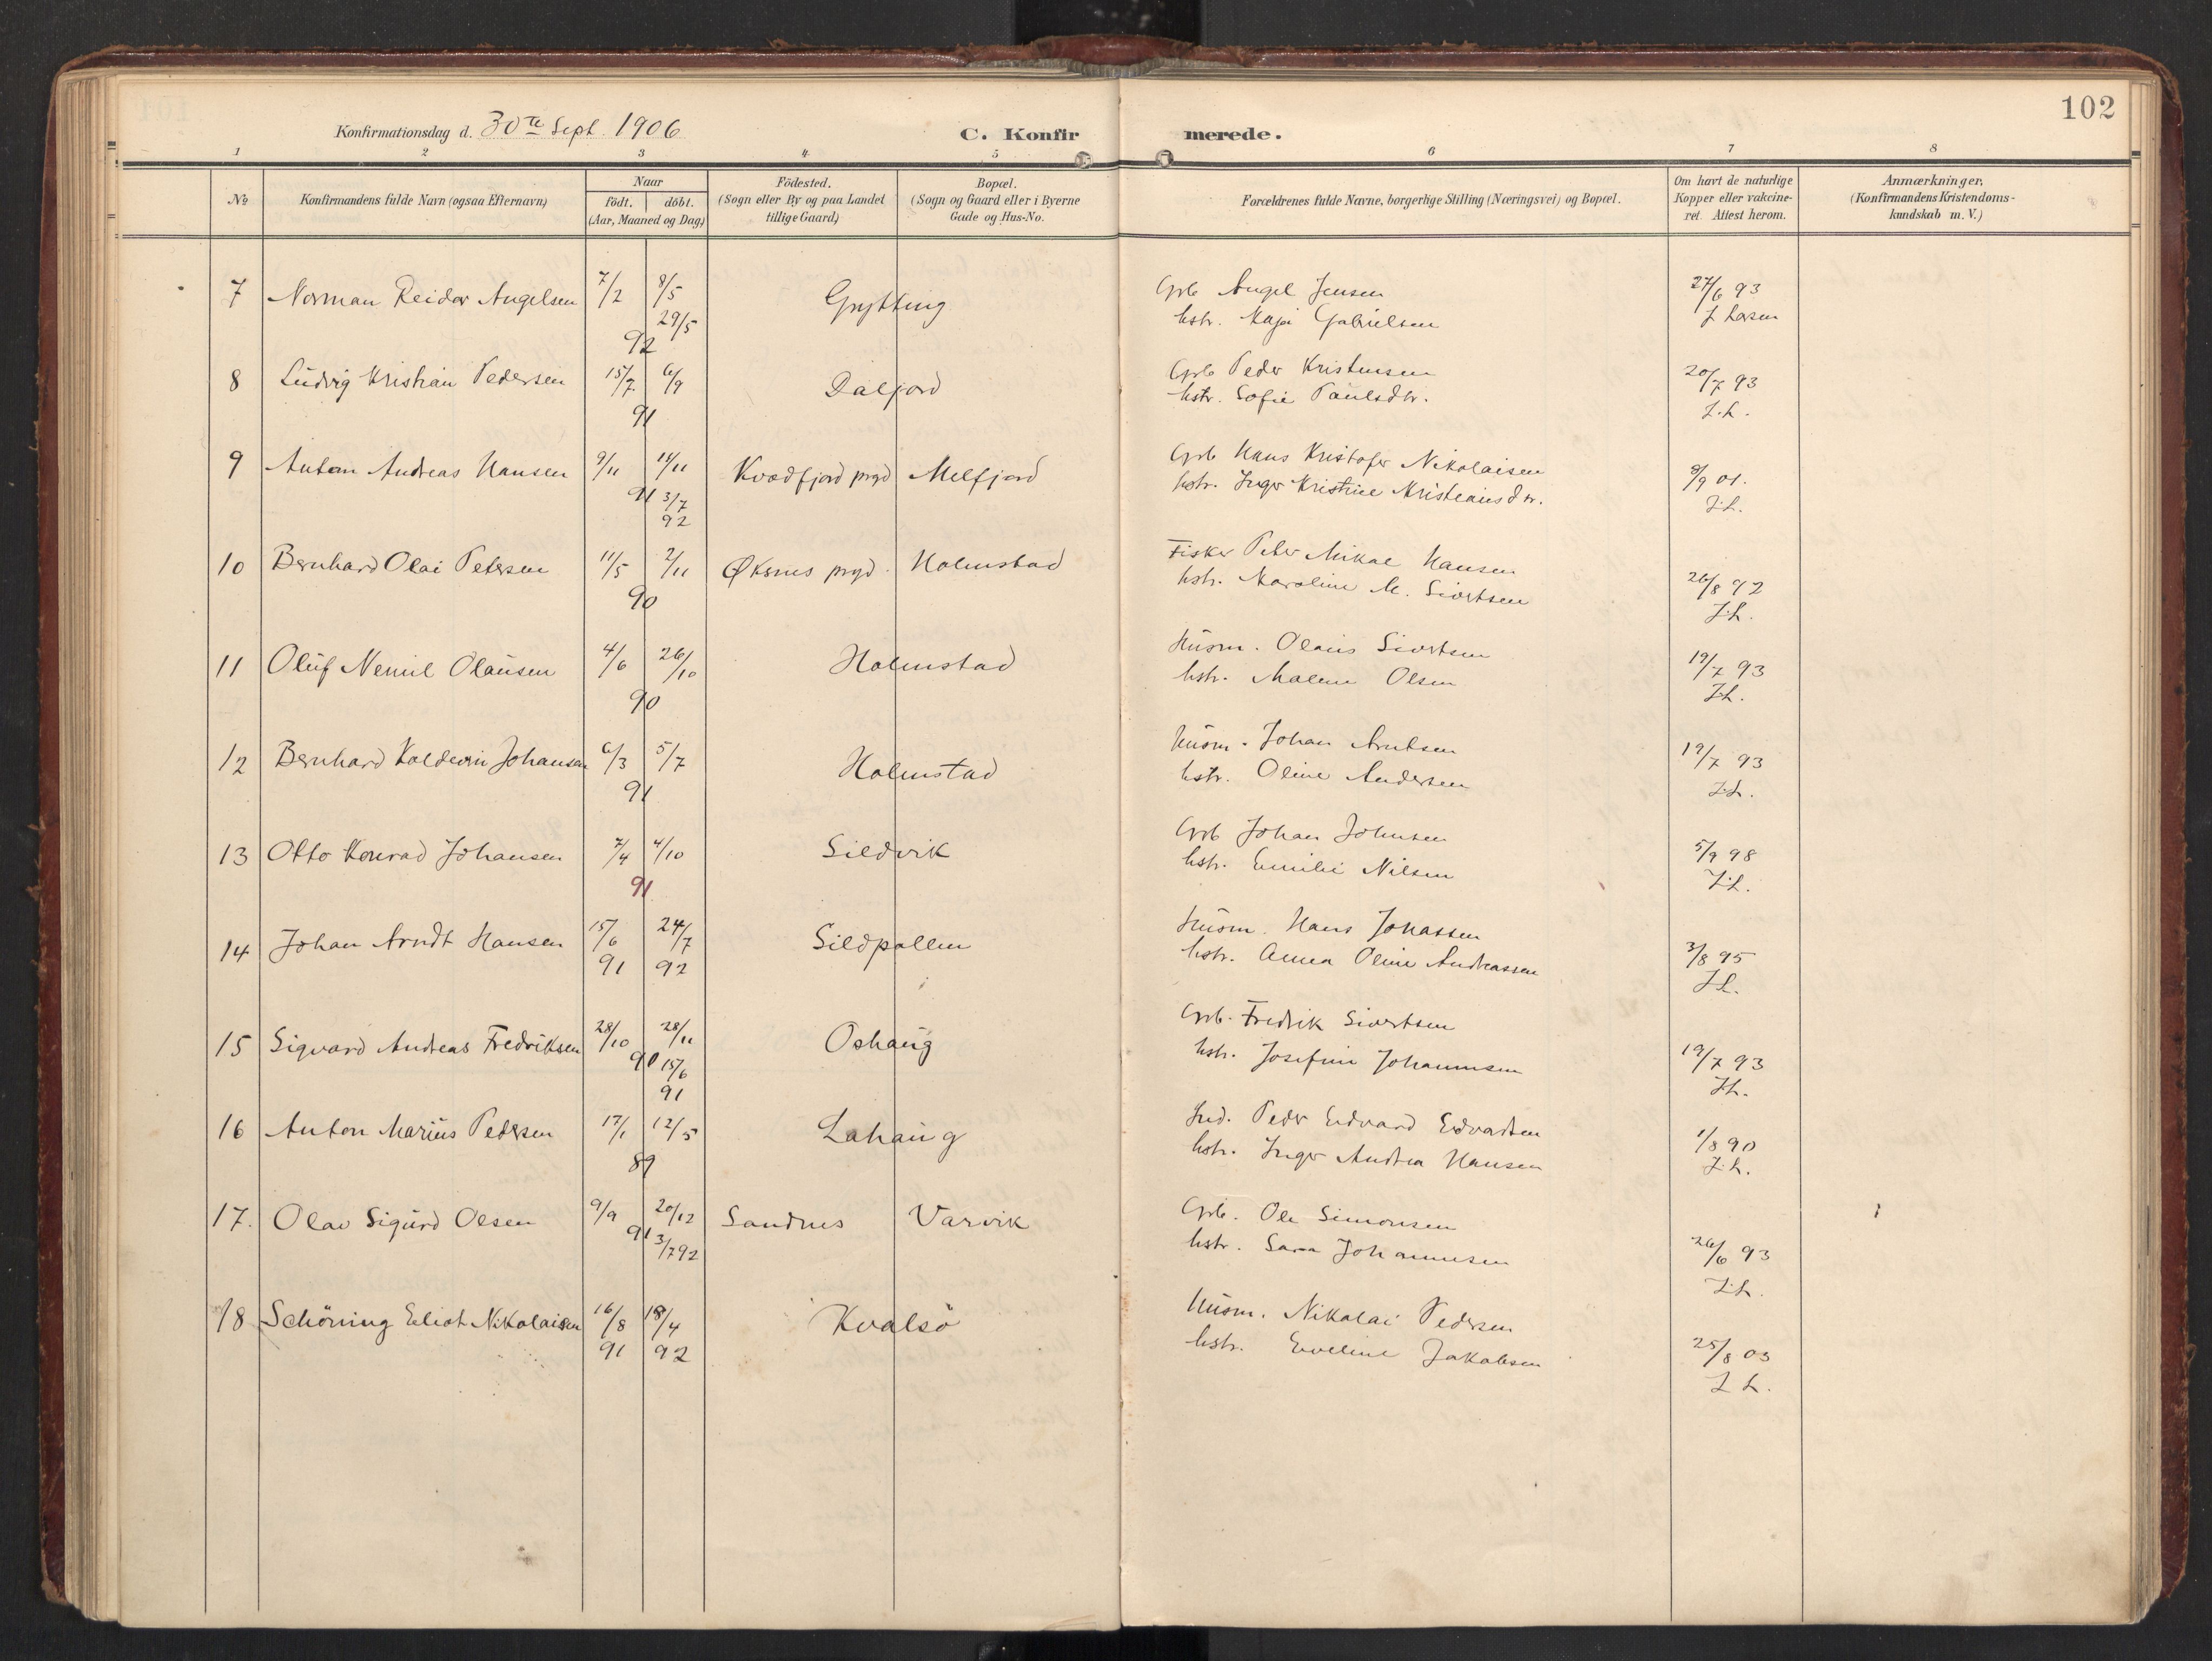 102
Konfirmationsdag d. 30te Sept. 1906
C. Konfirmerede.
1 2 3 4 5 6 7 8
No
Konfirmandens fulde Navn (ogsaa Efternavn)
Naar
födt. döbt.
(Aar, Maaned og Dag)
Födested.
(Sogn eller By og paa Landet
tillige Gaard)
Bopæl.
(Sogn og Gaard eller i Byerne
Gade og Hus-No.
Forældrenes fulde Navne, borgerlige Stilling (Næringsvei) og Bopæl.
Om havt de naturlige
Kopper eller vakcine-
ret. Attest herom.
Anmærkninger,
(Konfirmandens Kristendoms-
kundskab m. V.)
7 Norman Reidar Angelsen 7/2 8/5 Grytting Grb Angel Jensen 27/6 93
29/5 hstr. Kaja Gabrielsen J Larsen
92
8 Ludvig Kristian Pedersen 15/7 6/9 Daljord Grb Peder Kristensen 20/7 93
91 hstr. Sofie Paulsdtr. J.L.
9 Anton Andreas Hansen 9/11 11/11 Kvædfjord prgd Melfjord Grb Hans Kristofer Nikolaisen 8/9 01.
91 3/7 hstr. Inger Kristine Kristiansdtr. J.L.
92
10 Bernhard Olai Petersen 11/5 2/11 Øksnes prgd. Holmstad Fisker Peter Mikal Hansen 26/8 92
90 hstr. Karoline M. Sivertsen J.L.
11 Oluf Nemil Olausen 4/6 26/10 Holmstad Husm. Olaus Sivertsen 19/7 93
90 hstr. Malene Olsen J.L.
12 Bernhard Koldevin Johansen 6/3 5/7 Holmstad Husm. Johan Arntsen 19/7 93
91 hstr. Oline Andersen J.L.
13 Otto Konrad Johansen 7/4 4/10 Sildvik Grb Johan Johnsen 5/9 98
91 hstr. Emilie Nilsen J.L.
14 Johan Arndt Hansen 15/6 24/7 Sildpollen Husm. Hans Jonassen 3/8 95
91 92 hstr. Anna Oline Andreassen J.L.
15 Sigvard Andreas Fredriksen 28/10 28/11 Oshaug Grb. Fredrik Sivertsen
90 15/6 hstr. Josefine Johannesen 19/7 93
91 J.L.
16 Anton Marius Pedersen 17/1 12/5 Lahaug Ind. Peder Edvard Edvardsen 1/8 90
89 hstr. Inger Andrea Hansen J.L.
17. Olav Sigurd Olsen 9/9 20/12 Sandnes Varvik Grb. Ole Simonsen
91 3/7 92 hstr. Sara Johannesen 26/6 93
J.L.
18 Schöning Eliot Nikolaisen 16/8 18/4 Kvalsö Husm. Nikolai Pedersen
91 92 hstr. Eveline Jakobsen 25/8 03
J L.